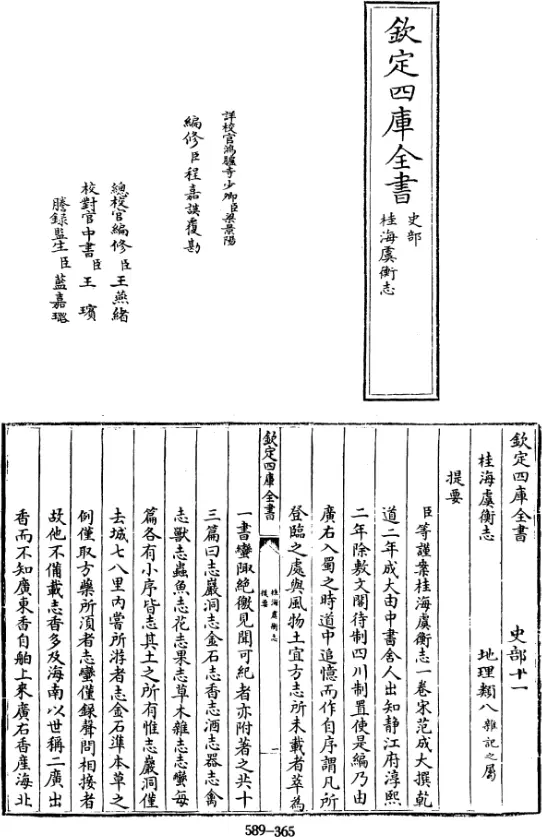 欽定四庫全書
史部
桂海虞衡志
詳校官鴻臚寺少卿臣梁景陽
編修臣程嘉謨覆勘
總校官編修臣王燕緒
校對官中書臣王璸
謄錄監生臣藍嘉瑙
欽定四庫全書
史部十一
桂海虞衡志
地理類八雜記之屬
提要
臣等謹案桂海虞衡志一卷宋范成大撰乾
道二年成大由中書舍人出知静江府淳熙
二年除敷文閣待制四川制置使是編乃由
廣右入蜀之時道中追憶而作自序謂凡所
登臨之處與風物土宜方志所未載者萃為
欽定四庫全書
桂海虞衡志
提要
一
一書蠻陬絶徼見聞可紀者亦附著之共十
三篇曰志巖洞志金石志香志酒志器志禽
志獸志蟲魚志花志果志草木雜志志蠻每
篇各有小序皆志其土之所有惟志巖洞僅
去城七八里内嘗所游者志金石準本草之
例僅取方藥所須者志蠻僅錄聲問相接者
故他不備載志香多及海南以世稱二廣出
香而不知廣東香自舶上來廣右香産海北
589-365